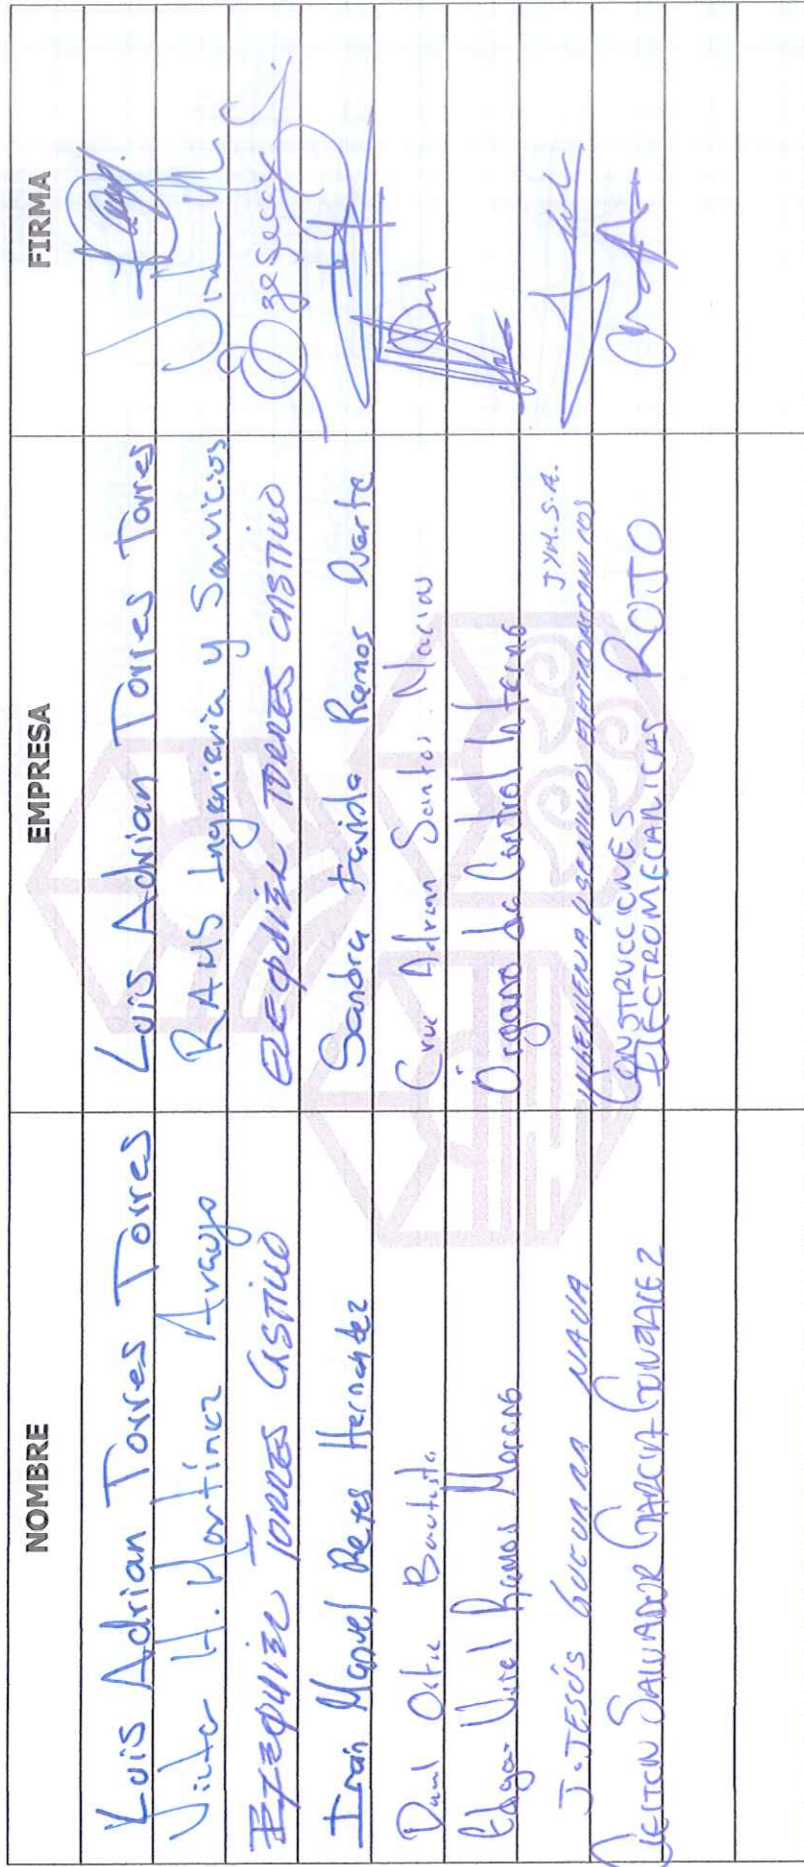 NOMBRE EMPRESA FIRMA
Luis Adrian Torres Torres Luis Adrian Torres Torres
Victor H. Martínez Araujo RAMS Ingeniería y Servicios
EZEQUIEL TORRES CASTILLO EZEQUIEL TORRES CASTILLO Ezequiel
Irain Manuel Reyes Hernandez Sandra Faviola Ramos Duarte
Ortiz Bautista Cruz Adrian Santos Macias
Edgar Uriel Ramos Moreno Órgano de Control Interno
J. JESÚS GUERRA NAVA INGENIERIA Y SERVICIOS ELECTROMECANICOS JYM. S.A.
SALVADOR GARCIA GONZALEZ CONSTRUCCIONES
ELECTROMECANICAS ROJO